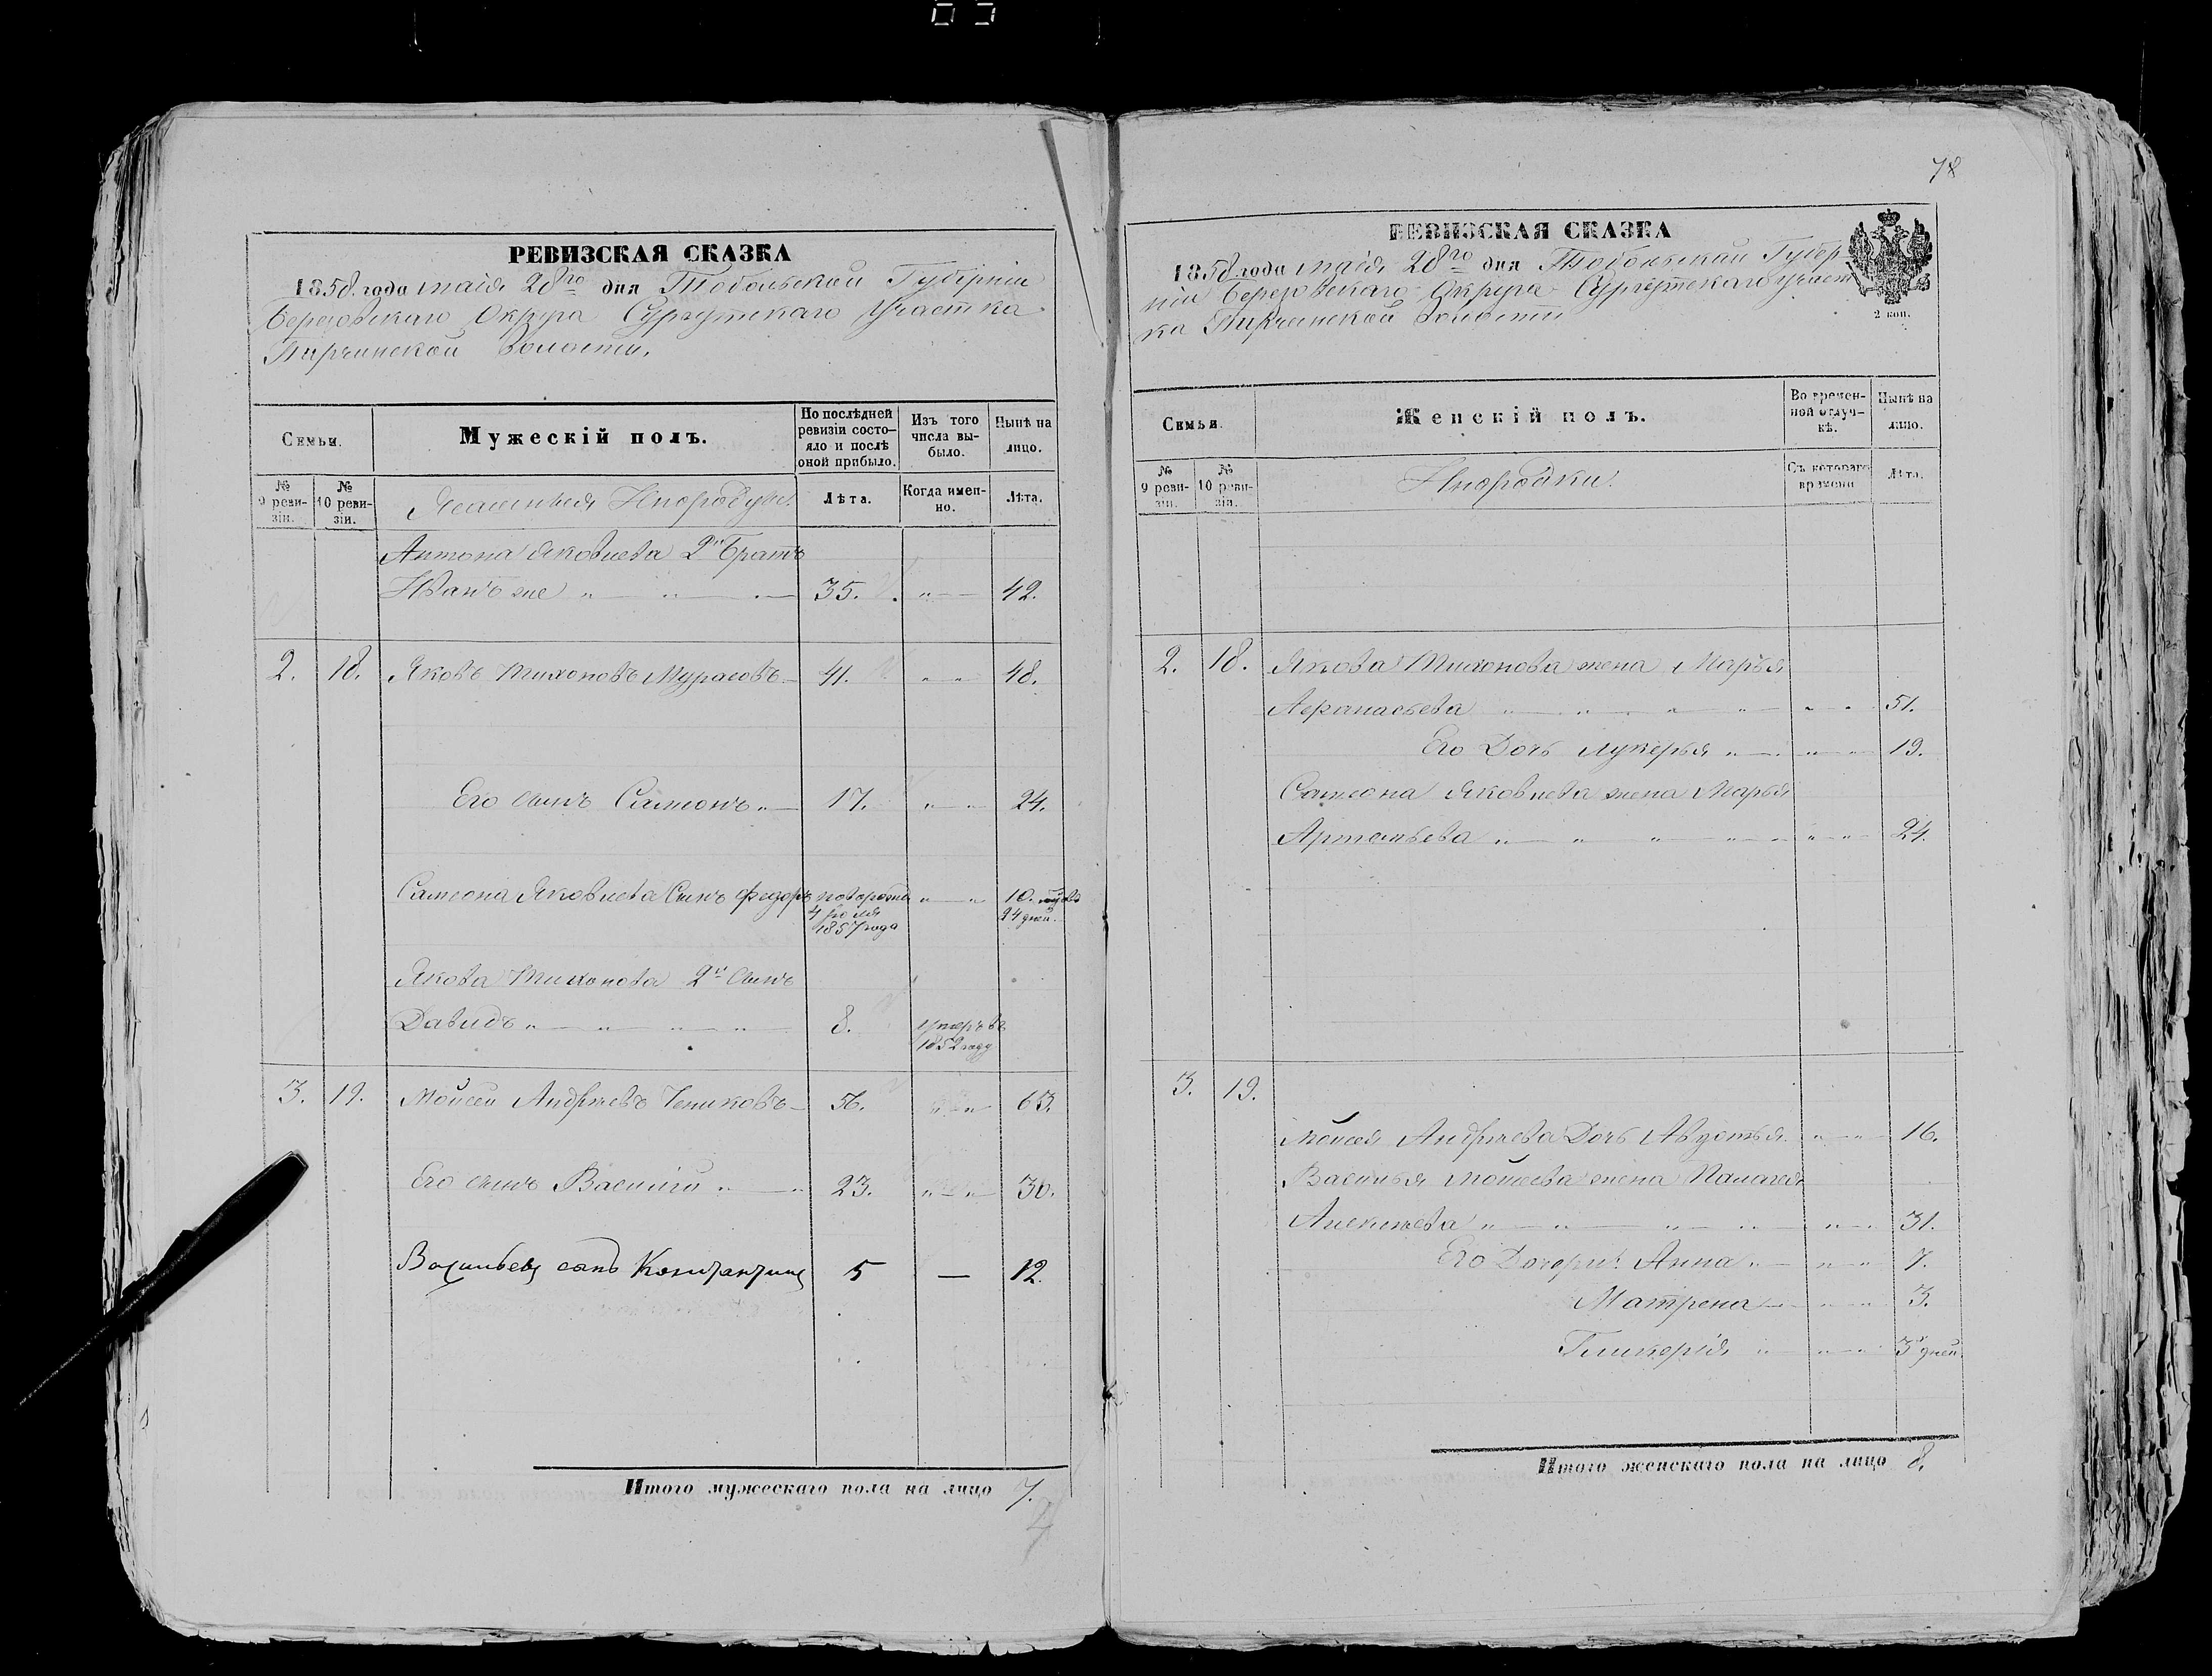 РЕВИЗСКАЯ СКАЗКА
1858 года маія 28го дня Тобольской Губерніи
Березовскаго Округа Сургутскаго Участка
Пирчинской Волости.
Семьи.
Мужескій полъ.
По послѣдней ревизіи состояло и послѣ оной прибыло.
Изъ того числа выбыло.
Нынѣ на лицо.
№ 9 ревизіи.
№ 10 ревизіи.
Ясашныя Инородцы.
Лѣта.
Когда именно.
Лѣта.
Антона Яковлева 2й Братъ
Иванъ же 35. 42.
2. 18. Яковъ Тихоновъ Мурасовъ 41. 48.
Его сынъ Самсонъ 17. 24.
Самсона Яковлева Сынъ Федоръ новорожд. 10.
4 Іюля 24 дней.
1857 года
Якова Тихонова 2й Сынъ
Давидъ 8. умеръ въ
1852 году
3. 19. Мойсей Андреевъ Чениковъ 56. 63.
Его сынъ Василій 23. 30.
Васильевъ сынъ Константинъ 5 — 12.
Итого мужескаго пола на лицо 7.
78
РЕВИЗСКАЯ СКАЗКА
1858 года маія 28го дня Тобольской Губер-
ніи Березовскаго Округа Сургутскаго участ-
ка Пирчинской Волости
2 коп.
Семьи.
Женскій полъ.
Во времен-
ной отлуч-
кѣ.
Нынѣ на
лицо.
№ 9 ревизіи.
№ 10 ревизіи.
Инородки.
Съ котораго
времени
Лѣта.
2. 18. Якова Тихонова жена Марья
Афанасьева 51.
Его Дочь Лукерья 19.
Самсона Яковлева жена Марья
Артемьева 24.
3. 19.
Мойсея Андреева Дочь Авдотья 16.
Василья Мойсеева жена Палагея
Алексеева 31.
Его Дочери: Анна 7.
Матрена 3.
Гликерія 3 дней
Итого женскаго пола на лицо 8.